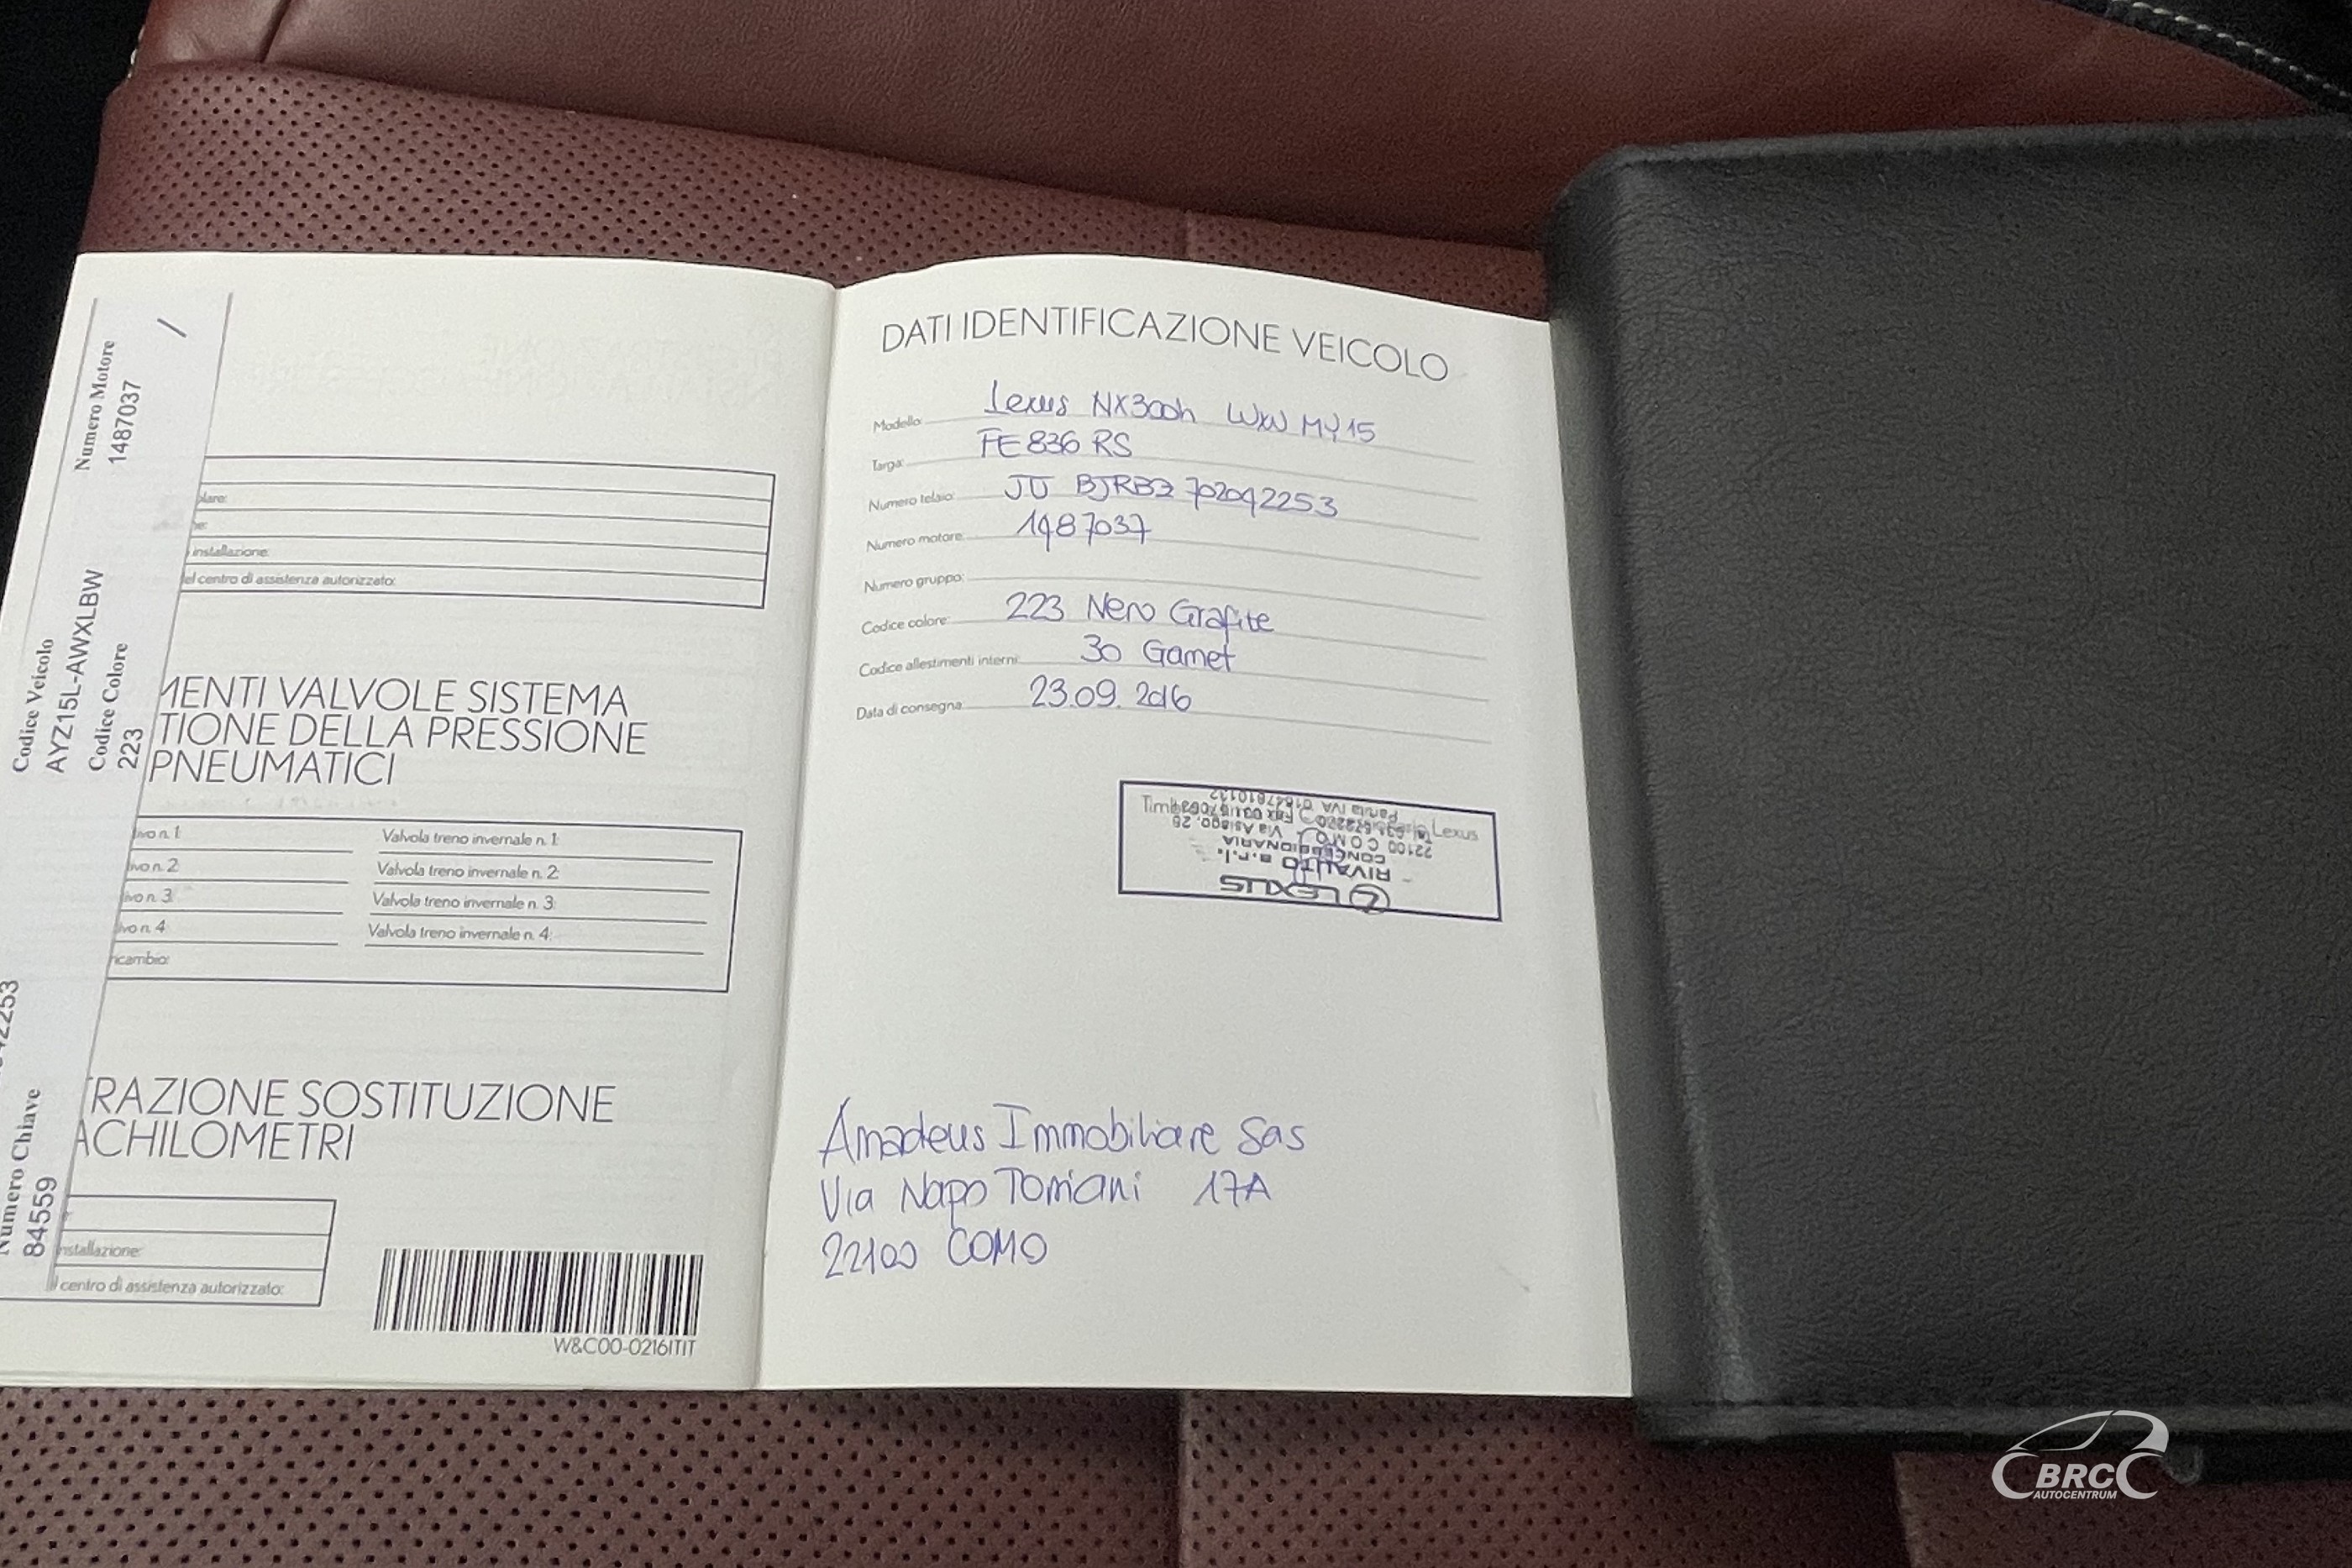 Numero Motore
1487037
Codice Veicolo
AYZ15L-AWXLBW
Codice Colore
223
2253
Numero Chiave
84559
olare:
installazione:
el centro di assistenza autorizzato:
MENTI VALVOLE SISTEMA
TIONE DELLA PRESSIONE
PNEUMATICI
ivo n. 1: Valvola treno invernale n. 1:
ivo n. 2: Valvola treno invernale n. 2:
ivo n. 3: Valvola treno invernale n. 3:
ivo n. 4: Valvola treno invernale n. 4:
ricambio:
TRAZIONE SOSTITUZIONE
ACHILOMETRI
nstallazione:
l centro di assistenza autorizzato:
W&C00-0216ITIT
DATI IDENTIFICAZIONE VEICOLO
Modello: Lexus NX300h WxW MY15
Targa: FE 836 RS
Numero telaio: JTJ BJRBZ 702042253
Numero motore: 1487037
Numero gruppo:
Codice colore: 223 Nero Grafite
Codice allestimenti interni: 30 Garnet
Data di consegna: 23.09.2016
LEXUS
RIVAUTO s.r.l.
CONCESSIONARIA
22100 COMO - Via Asiago, 26
Partita IVA
Lexus
Amadeus Immobiliare Sas
Via Napo Torriani 17A
22100 COMO
BRC
AUTOCENTRUM